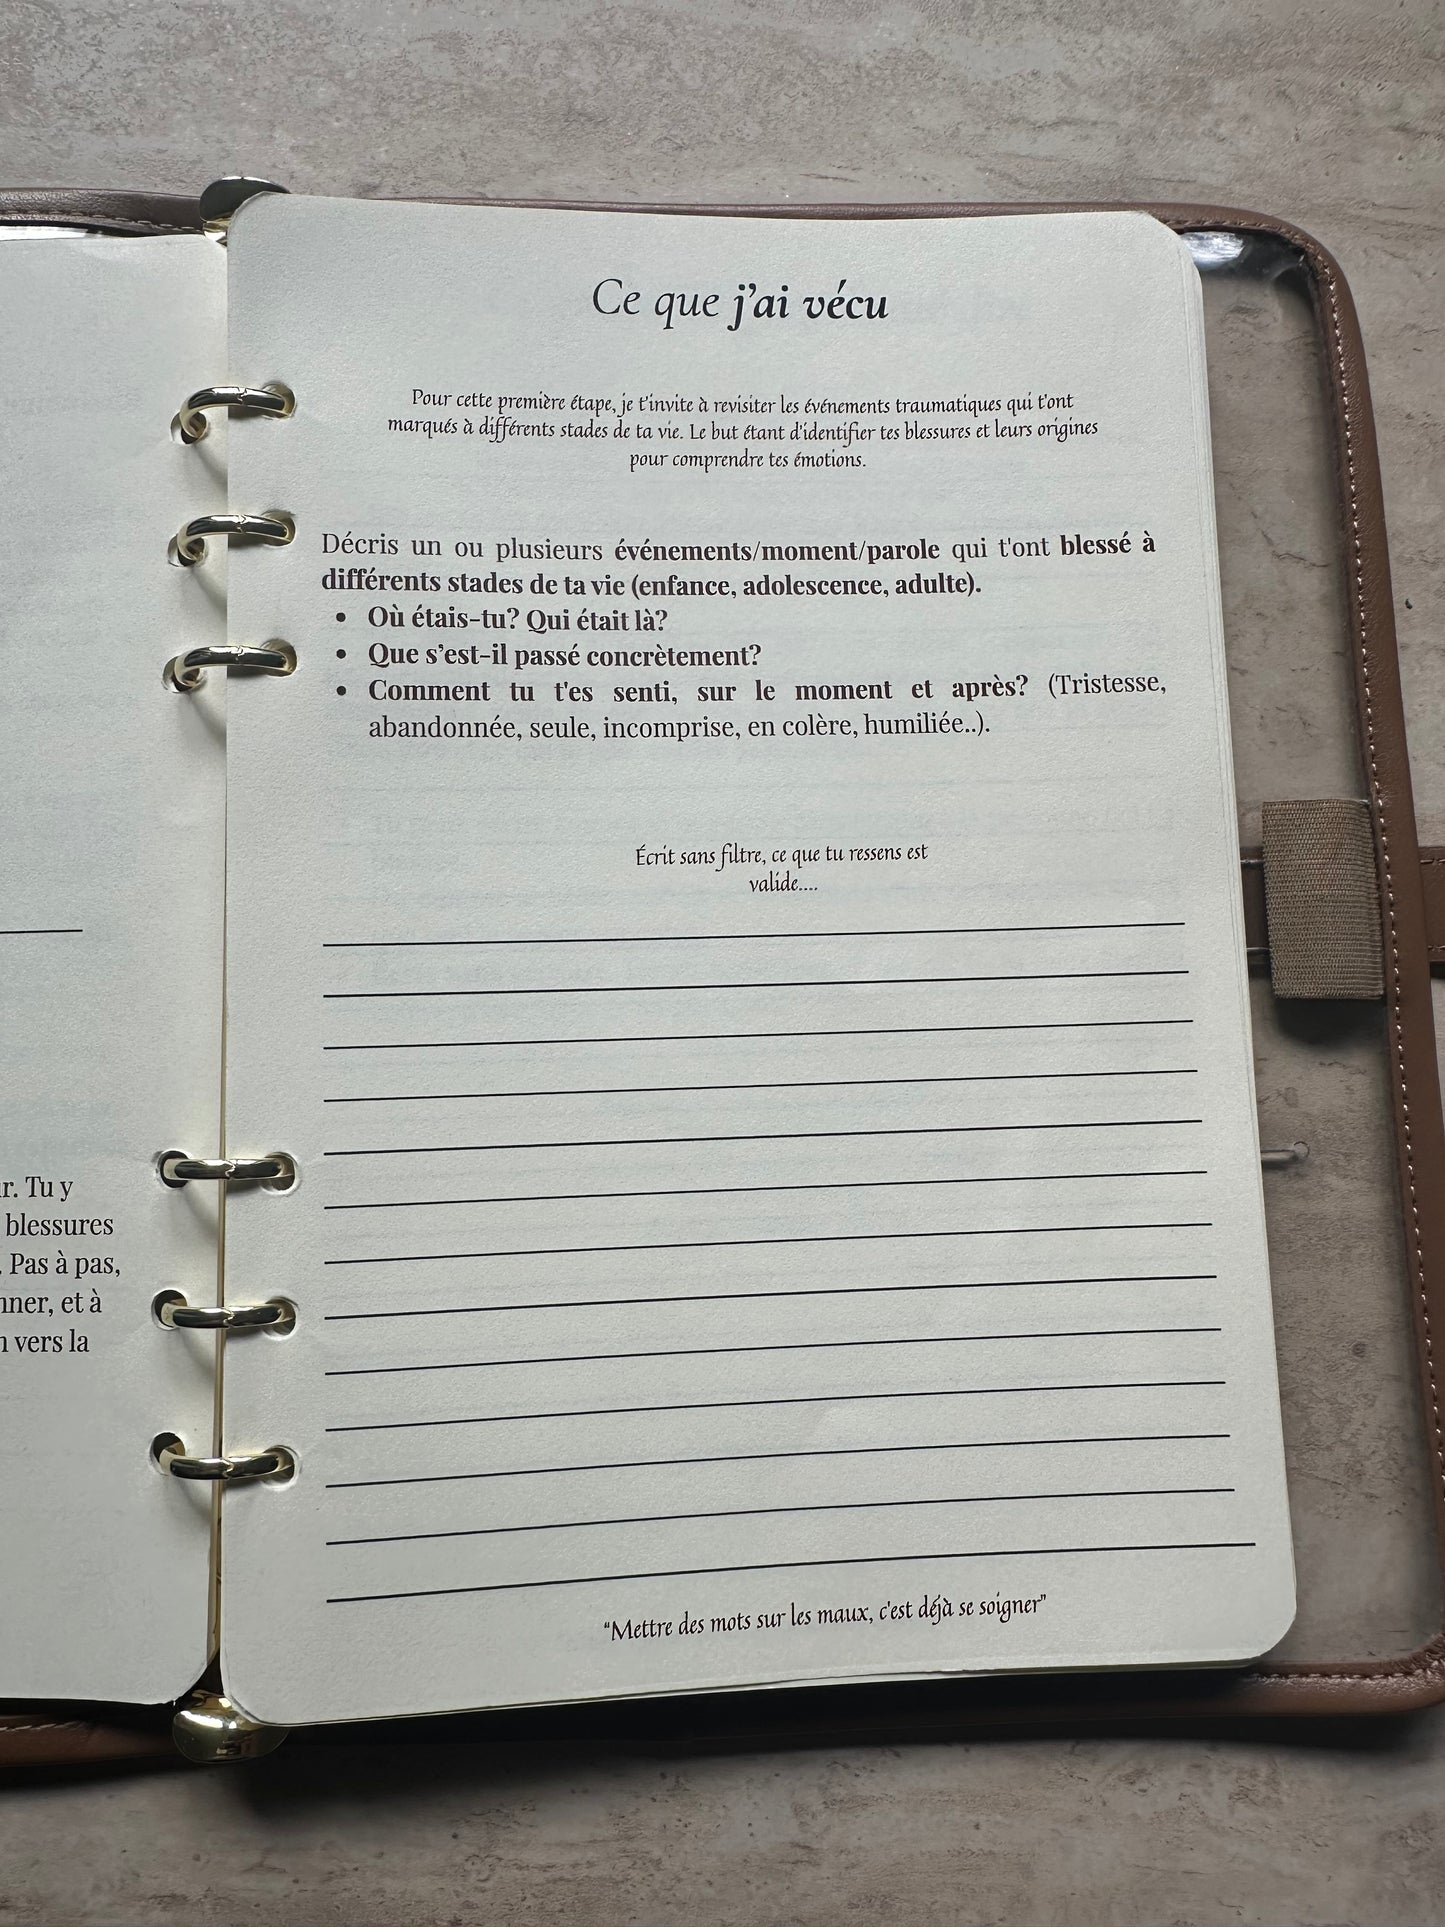 r. Tu y
blessures
. Pas à pas,
nner, et à
n vers la
Ce que j'ai vécu
Pour cette première étape, je t'invite à revisiter les événements traumatiques qui t'ont
marqués à différents stades de ta vie. Le but étant d'identifier tes blessures et leurs origines
pour comprendre tes émotions.
Décris un ou plusieurs événements/moment/parole qui t'ont blessé à
différents stades de ta vie (enfance, adolescence, adulte).
• Où étais-tu? Qui était là?
• Que s’est-il passé concrètement?
• Comment tu t'es senti, sur le moment et après? (Tristesse,
abandonnée, seule, incomprise, en colère, humiliée..).
Écrit sans filtre, ce que tu ressens est
valide....
“Mettre des mots sur les maux, c'est déjà se soigner”